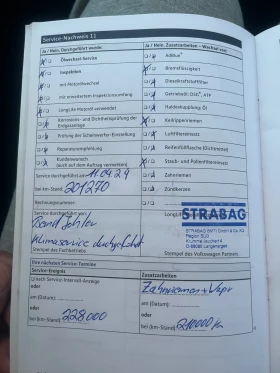 Service-Nachweis 11
Ja / Nein, Durchgeführt wurde:
Ja / Nein, Zusatzarbeiten – Wechsel von:
Ölwechsel-Service
AdBlue®
Inspektion
Bremsflüssigkeit
mit Motorölwechsel
Dieselkraftstofffilter
mit erweitertem Inspektionsumfang
Getriebeöl: DSG®, ATF
LongLife Motoröl verwendet
Haldexkupplung Öl
Korrosions- und Dichtheitsprüfung der Erdgasanlage
Keilrippenriemen
Prüfung der Scheinwerfer-Einstellung
Luftfiltereinsatz
Reparaturempfehlung
Kundenwunsch
(auch auf dem Auftrag vermerken)
Staub- und Pollenfiltereinsatz
Service durchgeführt am
Zahnriemen
bei km-Stand: 201270
Zündkerzen
Rechnungsnummer:
Service durchgeführt von:
STRABAG
STRABAG BMTI GmbH & Co. KG
Klimaservice durchgeführt
Stempel des Fachbetriebs
Stempel des Volkswagen Partners
Ihre nächsten Service-Termine
Service-Ereignis
Zusatzarbeiten
Laut Service-Intervall-Anzeige
Zahnriemen + Wapu
oder
am (Datum):
am (Datum):
oder
oder
bei (km-Stand): 228000
bei (km-Stand): 210000 km